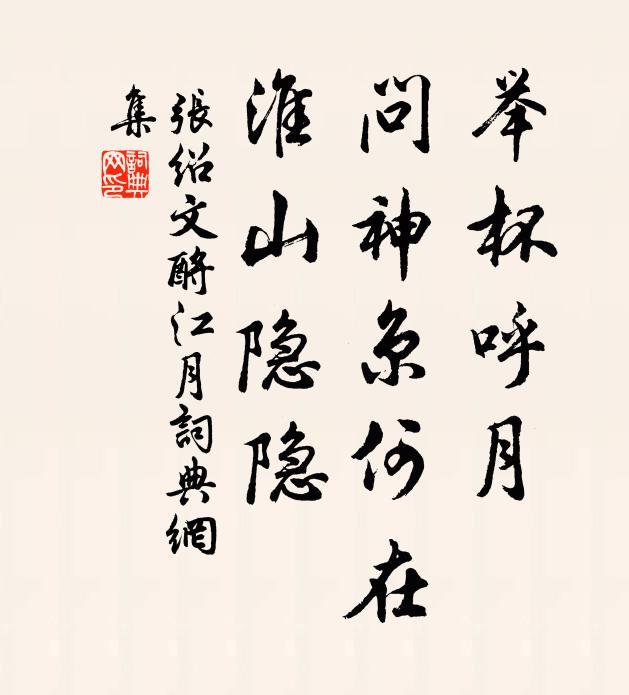 举杯呼月
问神京何在
淮山隐隐
張紹文酹江月詞典網
集
詞典
网印